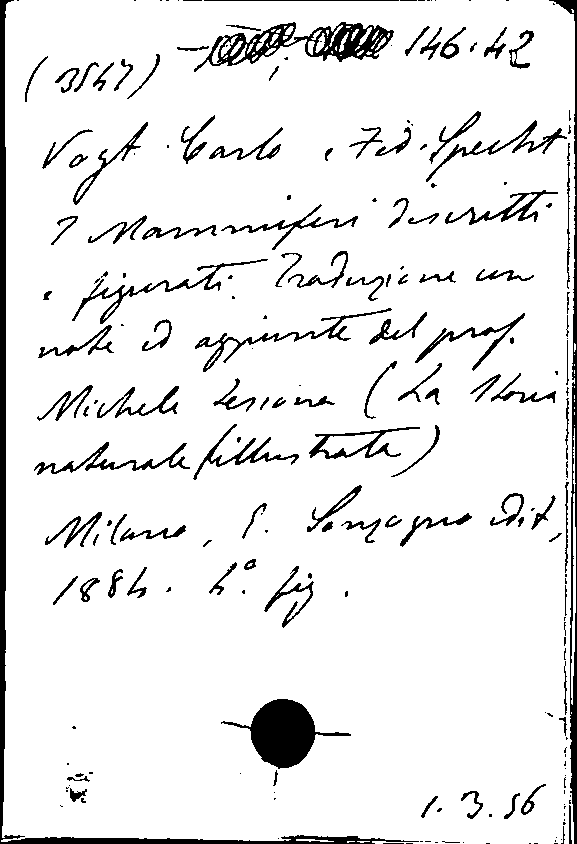 (3547) 146.42
Vogt Carlo e Fed. Specht
I Mammiferi descritti
e figurati. Traduzione con
note ed aggiunte del prof.
Michele Lessona (La Storia
naturale illustrata)
Milano, E. Sonzogno edit,
1884. 4°. fig.
1.3.56